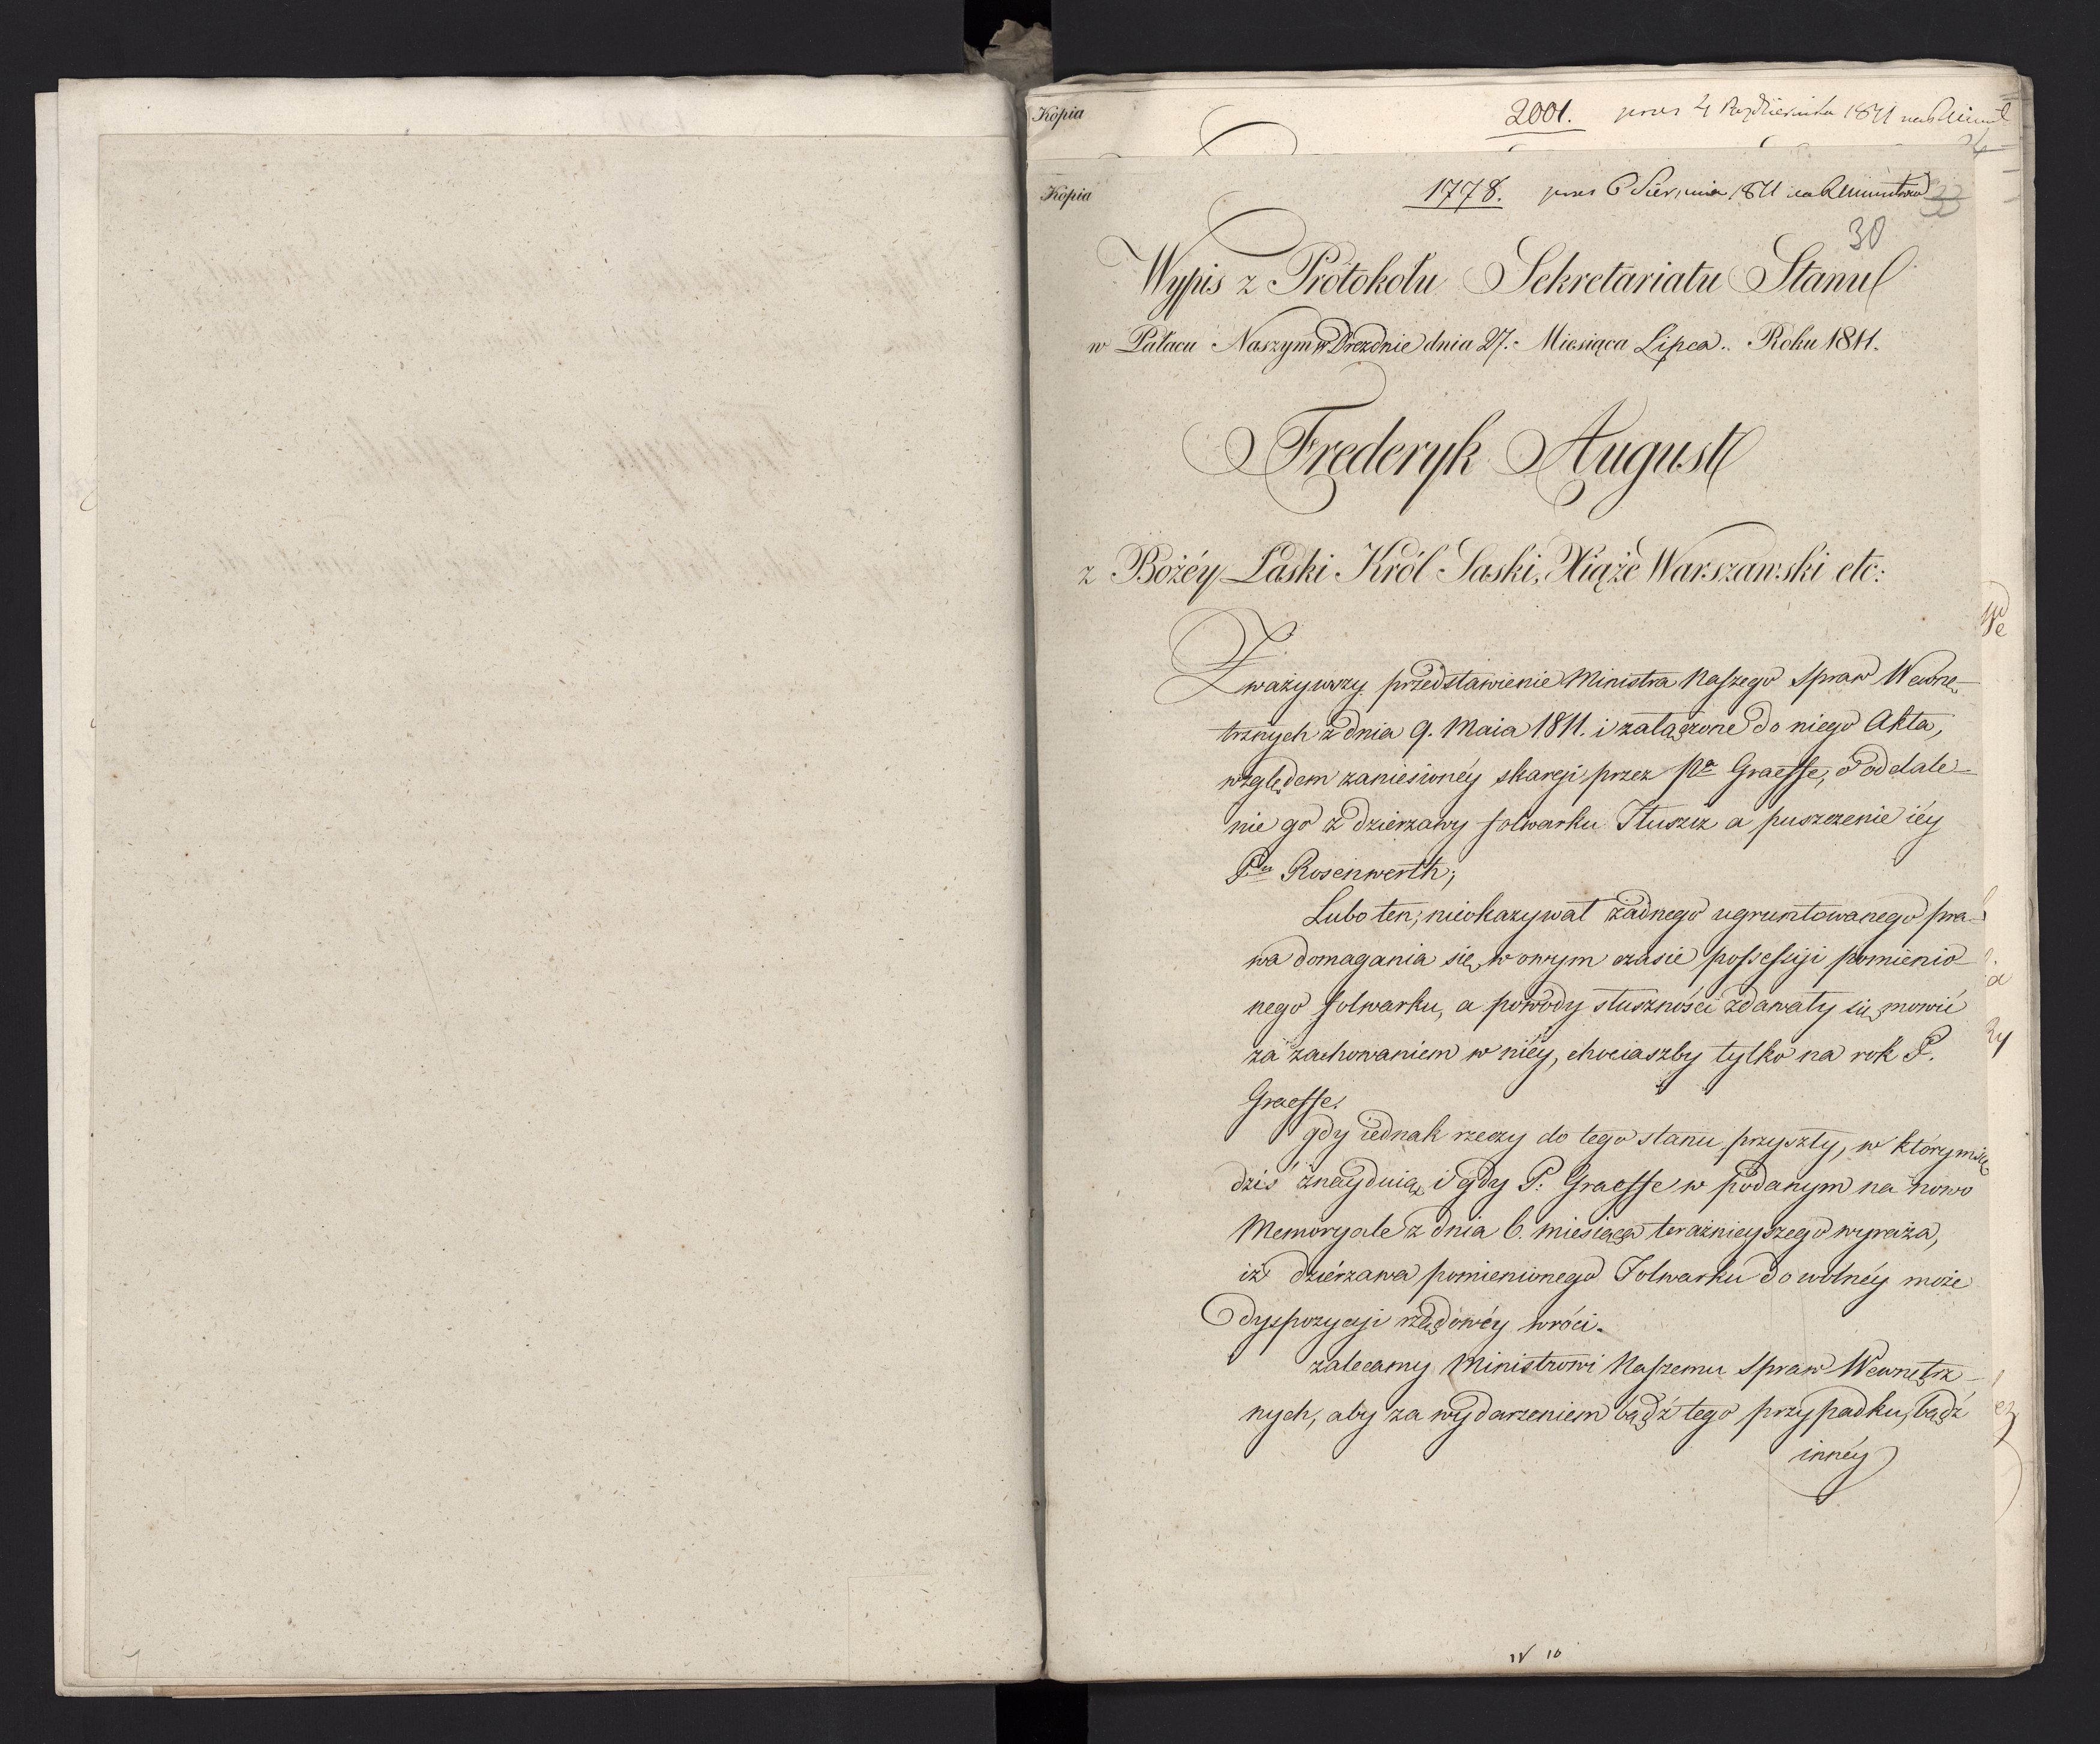 Kopia
2001. 4 Października 1811
Kopia
1778. 6 Sierpnia 1811
33
30
Wypis z Protokołu Sekretariatu Stanu
w Pałacu Naszym w Dreznie dnia 27. Miesiąca Lipca. Roku 1811.
Frederyk August
z Bożéy Łaski Król Saski, Xiąże Warszawski etc:
Zważywszy przedstawienie Ministra Naszego Spraw Wewnę-
trznych z dnia 9. Maia 1811. i załączone do niego Akta,
względem zaniesionéy skargi przez Pa Graesse, o oddale-
nie go z dzierzawy folwarku Tłuszcz a puszczenie iéy
Rosenwerth;
Lubo ten, nieokazywał żadnego ugruntowanego pra-
wa domagania się w owym czasie possessyi pomienio-
nego folwarku, a powody słuszności zdawały się mowić
za zachowaniem w niéy, chociaszby tylko na rok P.
Graesse.
gdy iednak rzeczy do tego stanu przyszły, w którym się
dziś znayduią, i gdy P: Graesse w podanym na nowo
Memoryale z dnia 6. miesiąca teraźnieyszego wyraża,
iż dziérzawa pomienionego Folwarku do wolnéy może
dyspozycyi rządowéy wróci.
zalecamy Ministrowi Naszemu Spraw Wewnętrz-
nych, aby za wydarzeniem bądź tego przypadku, bądź
innéy